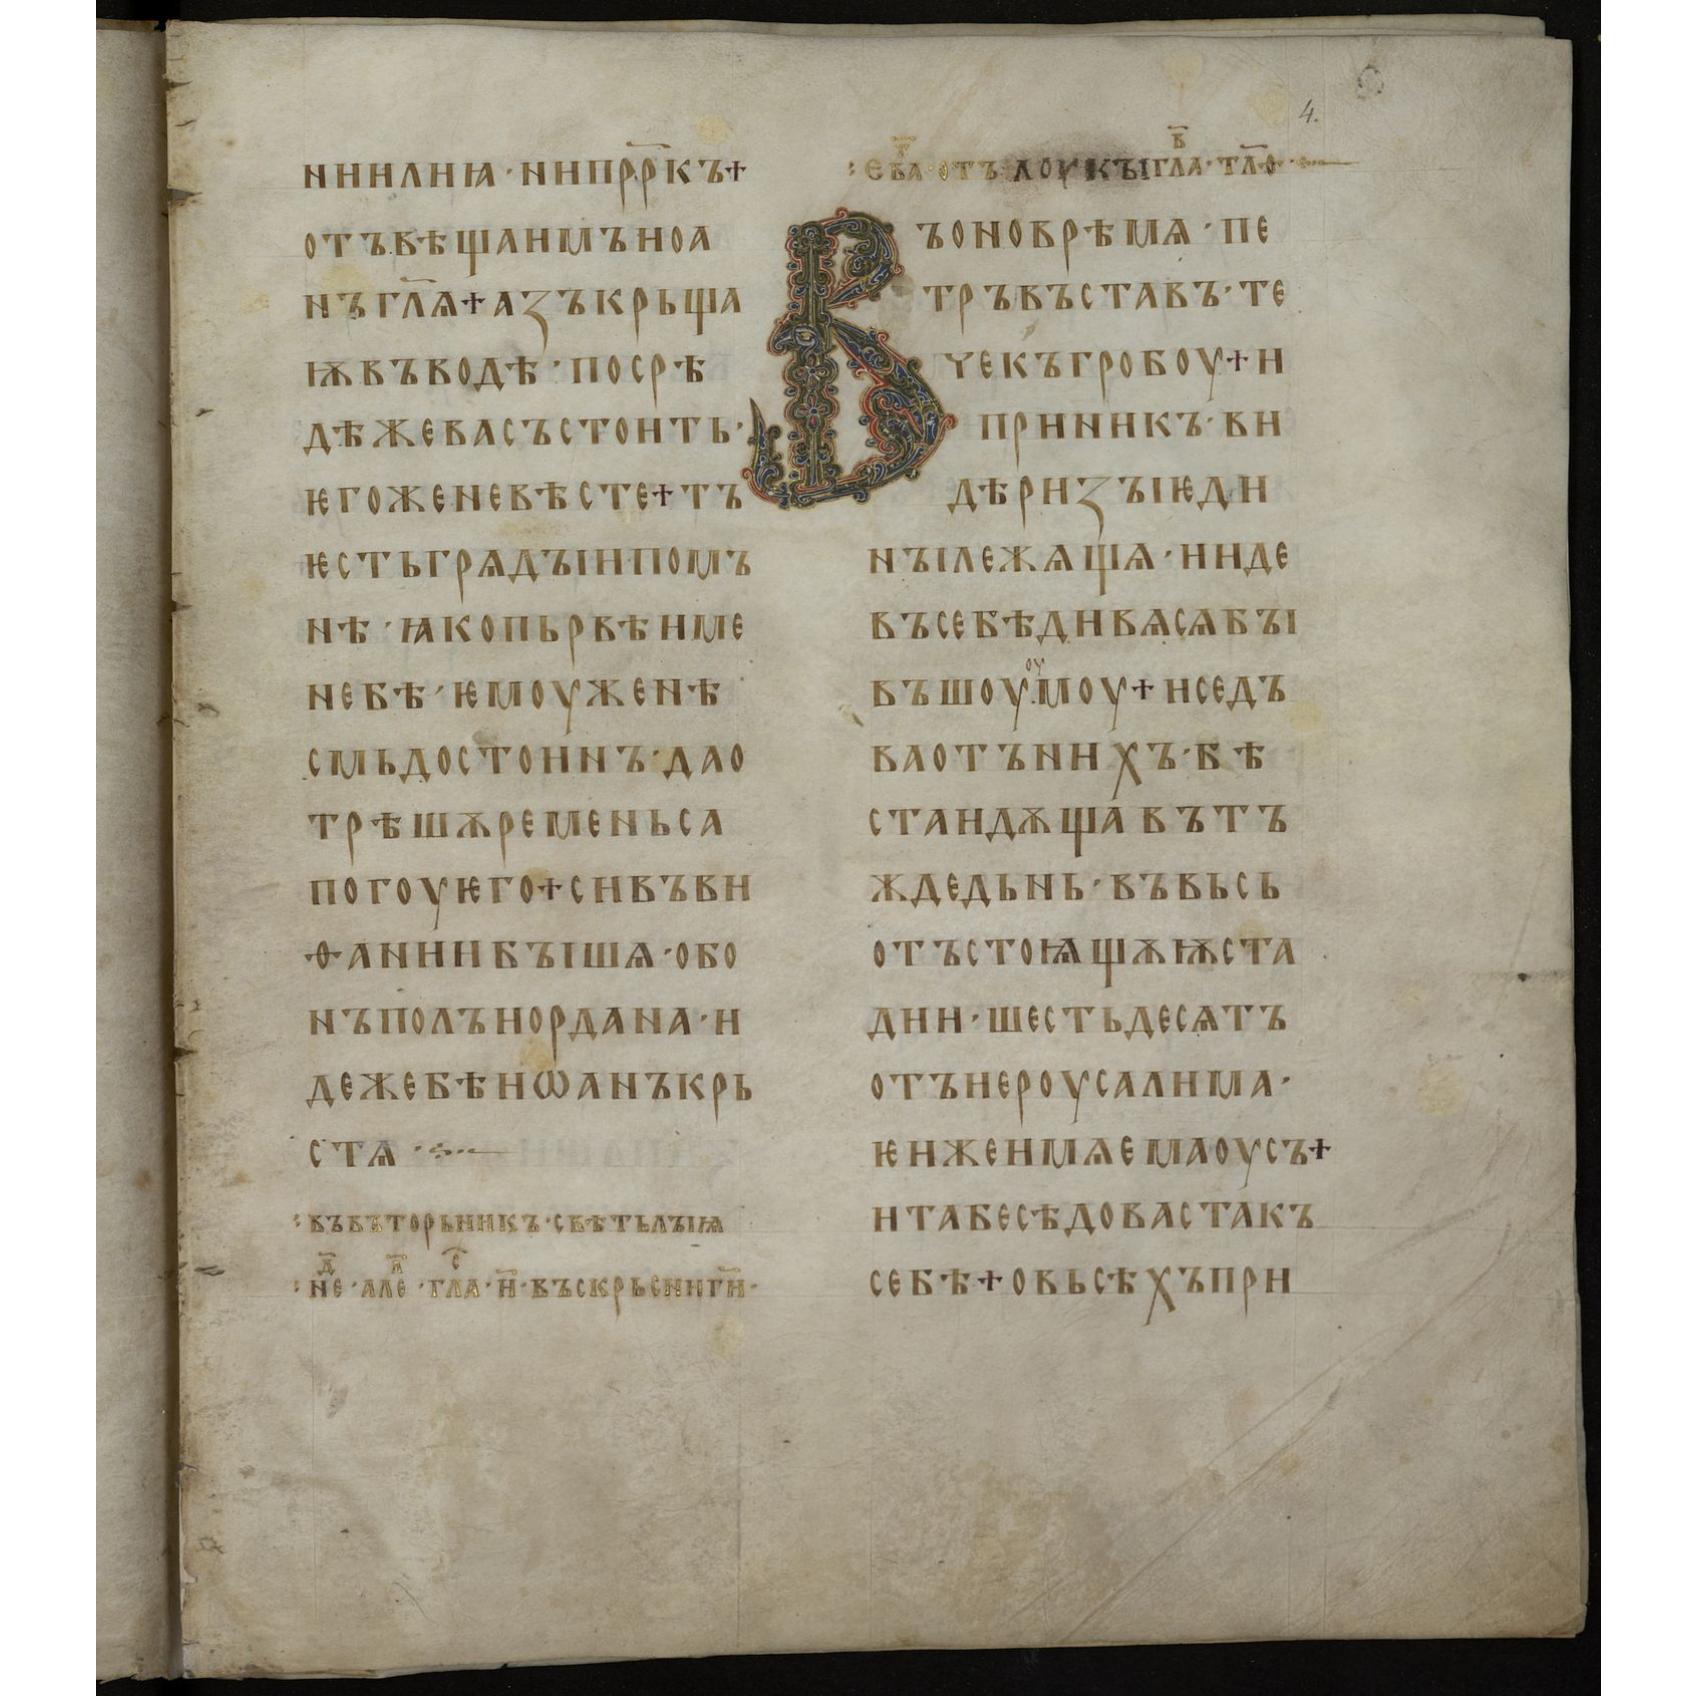 4.
ни илиꙗ · ни пррⷪ҇къ +
отъвѣща имъ иоа
нъ гл҃ѧ + азъ крьща
ѭ въ водѣ · посрѣ
дѣ же васъ стоить ·
ѥгоже не вѣсте + тъ
ѥсть грѧдꙑи по мъ
нѣ · ꙗко пьрвѣи ме
не бѣ · ѥмоуже нѣ
смь достоинъ · да о
трѣшѫ ремень са
погоу ѥго + си въ ви
ѳании бꙑшѧ · об о
нъ полъ иордана · и
деже бѣ иѡанъ крь
стѧ ·
въ въторьникъ · свѣтьлꙑѩ
не · але · гла · н҃ · въскрьсни ги҃ ·
ев҃а · отъ лоукꙑ гла · тл҃о ·
Въ оно врѣмѧ · пе
тръ въставъ · те
че къ гробоу + и
приникъ · ви
дѣ ризꙑ ѥди
нꙑ лежѧщѧ · и иде
въ себѣ дивѧсѧ бꙑ
въшоуоумоу + и се дъ
ва отъ нихъ · бѣ
ста идѫща въ тъ
жде дьнь · въ вьсь
отъстоѩщѫѭ ста
дии · шесть десѧтъ
отъ иероусалима ·
ѥиже имѧ емаоусъ +
и та бесѣдоваста къ
себѣ + о вьсѣхъ при